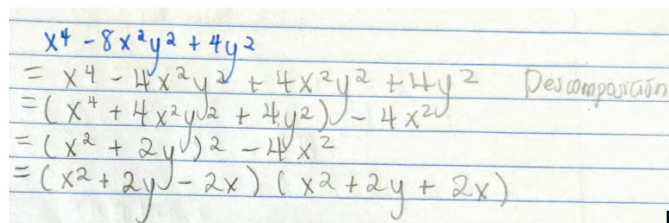 x⁴ - 8x²y² + 4y²
= x⁴ - 4x²y² + 4x²y² + 4y² Descomposición
= (x⁴ + 4x²y² + 4y²) - 4x²
= (x² + 2y)² - 4x²
= (x² + 2y - 2x) (x² + 2y + 2x)